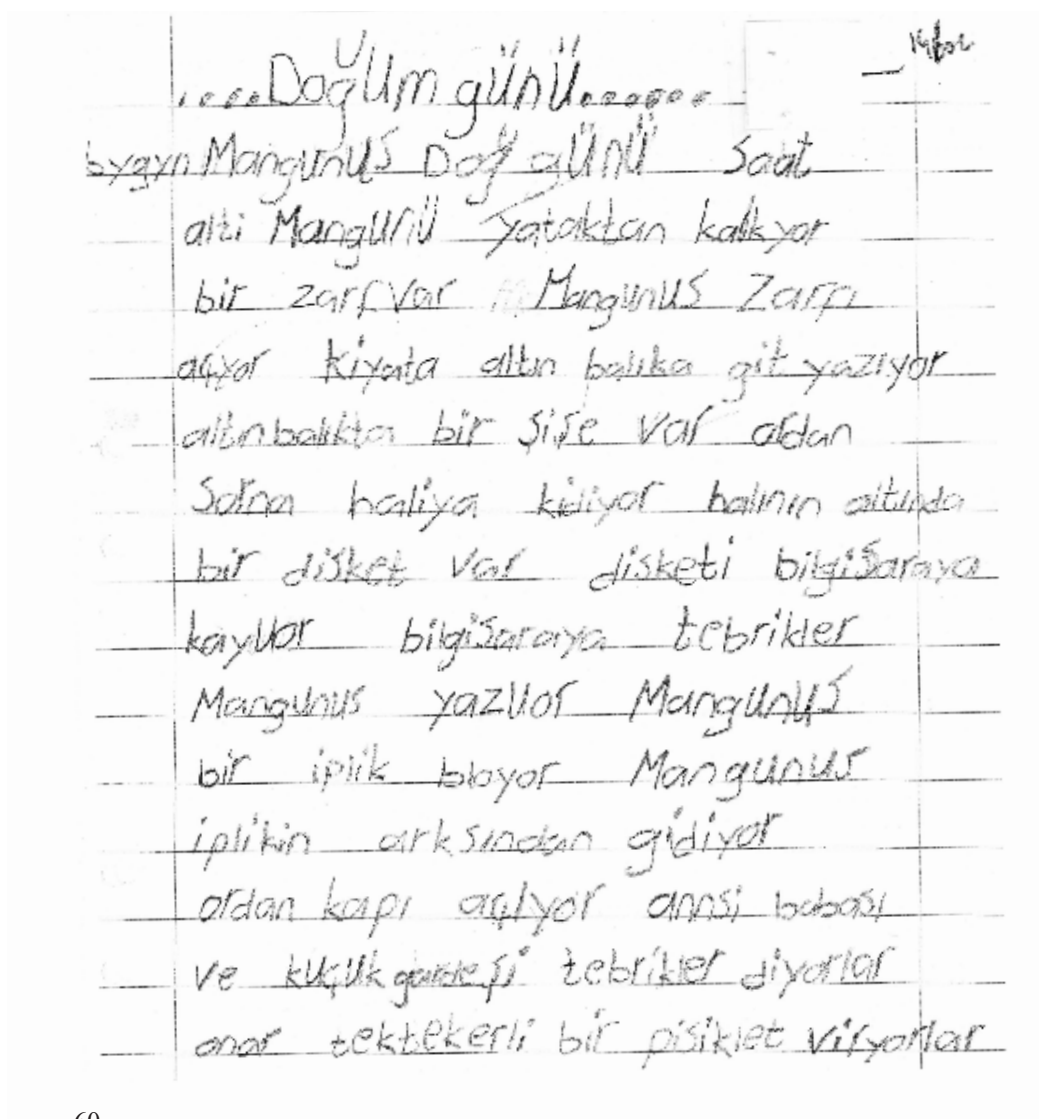 ....Doğum günü......
bygyn Mangunus Doğ günü Saat
alti Mangunü yataktan kalkyor
bir zarf var Mangunus Zarfı
açyor kiyata altın balıka git yazıyor
altınbalıkta bir şişe var ordan
Sorna haliya kidiyor halının altında
bir disket var disketi bilgisaraya
kayuor bilgisaraya tebrikler
Mangunus yazuor Mangunus
bir iplik bloyor Mangunus
iplikin arksından gidiyor
ordan kapı açlyor annsi babası
ve kuçuk gardeşi tebrikler diyorlar
onar tektekerli bir pisiklet viryorlar
60